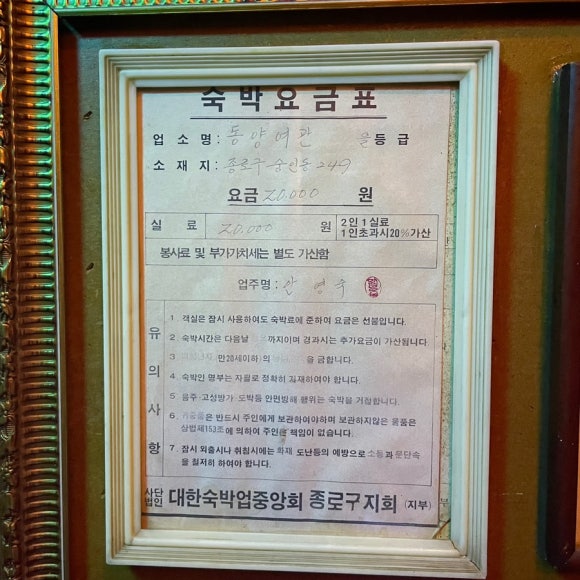 숙박요금표
업 소 명 : 동양여관 등급
소 재 지 : 종로구 숭인동 249
요금 20.000 원
실 료 20.000 원 2인 1실료
1인초과시20%가산
봉사료 및 부가가치세는 별도 가산함
업주명 : 안 영 수
유의사항
1. 객실은 잠시 사용하여도 숙박료에 준하여 요금은 선불입니다.
2. 숙박시간은 다음날 까지이며 경과시는 추가요금이 가산됩니다
3. 만20세이하)의 을 금합니다.
4. 숙박인 명부는 자필로 정확히 기재하여야 합니다.
5. 음주·고성방가 도박등 안면방해 행위는 숙박을 거절합니다.
6. 귀중품은 반드시 주인에게 보관하여야하며 보관하지않은 물품은
상법제153조에 의하여 주인은 책임이 없습니다.
7. 잠시 외출시나 취침시에는 화재 도난등의 예방으로 소등과 문단속
을 철저히 하여야 합니다.
사단
법인 대한숙박업중앙회 종로구지회 (지부)